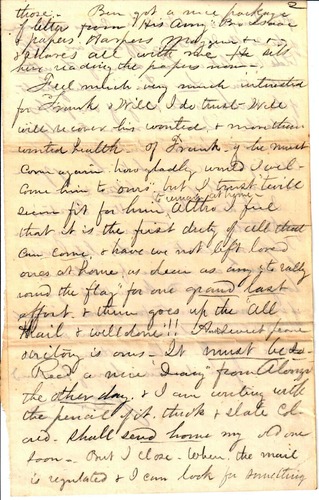 those. Ben got a nice package
of letter from His Amy
& papers Harpers &
& gloves all with me He sits
here reading the papers now
Feel much very much interested
for Frank & Will, I do trust Will
will recover his wonted, & more than
wonted health of Frank if he must
come again, how gladly would I wel-
come him to "ours" but I trust t'will
to remain at home
seem fit for him Altho I feel
that it is the first duty of all that
can come, & have we not left loved
ones at home, as dear as any to rally
round the flag" for one grand last
effort & then goes up the "All
Hail & well done"!!! And sweet peace
is ours It must be so
Read a nice from Alonzo
the other day & I am writing with
the pencil of it, thick & slate col
ored. shall send home my old one
soon But I close. When the mail
is regulated & I can look for something